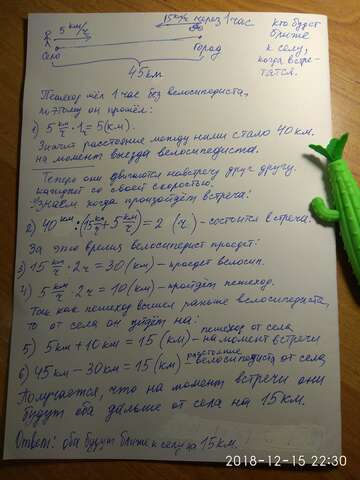 5 км/ч
15 км/ч через 1 час
кто будет
ближе
к селу,
когда встре-
тятся.
Село
Город
45км
Пешеход шёл 1 час без велосипедиста,
поэтому он прошёл:
1) 5 км/ч · 1ч = 5(км).
Значит расстояние между ними стало 40км.
на момент выезда велосипедиста.
Теперь они движутся навстречу друг другу.
каждый со своей скоростью.
Узнаем когда произойдёт встреча:
2) 40 км : (15 км/ч + 5 км/ч) = 2 (ч) - состоится встреча.
За это время велосипедист проедет:
3) 15 км/ч · 2ч = 30(км) - проедет велосип.
4) 5 км/ч · 2ч = 10(км) - пройдёт пешеход.
Так как пешеход вышел раньше велосипедиста,
то от села он уйдёт на:
5) 5км + 10км = 15 (км) - пешеход от села на момент встречи
6) 45км - 30км - 15(км) - расстояние велосипедиста от села
Получается, что на момент встречи они
будут оба дальше от села на 15км.
Ответ: оба будут ближе к селу на 15км.
2018-12-15 22:30